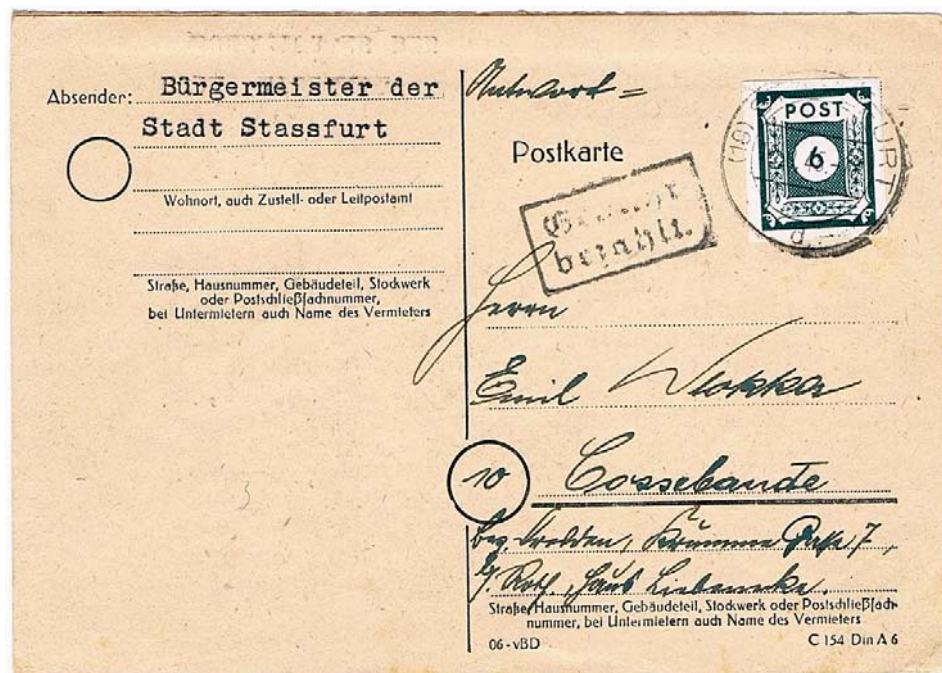 Absender: Bürgermeister der
Stadt Stassfurt
Wohnort, auch Zustell- oder Leitpostamt
Straße, Hausnummer, Gebäudeteil, Stockwerk
oder Postschließfachnummer,
bei Untermietern auch Name des Vermieters
Antwort =
Postkarte
POST
6
bezahlt.
Herrn
Emil
10 Cossebaude
bez. Dresden, Krumme 7,
Haus
Straße, Hausnummer, Gebäudeteil, Stockwerk oder Postschließfach-
nummer, bei Untermietern auch Name des Vermieters
06-vBD C 154 Din A 6